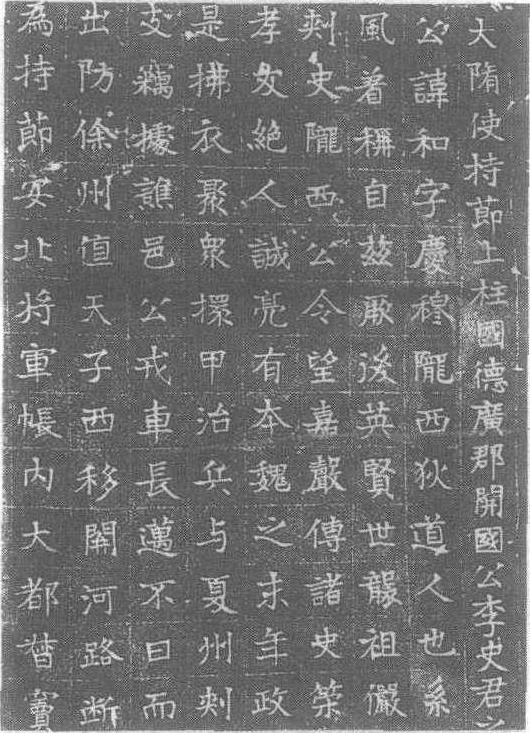 大隋使持節上柱國德廣郡開國公李史君
公諱和字慶穆隴西狄道人也系
風著稱自茲厥後英賢世襲祖儼
刾史隴西公令望嘉聲傳諸史筞
孝友絕人誠亮有本魏之末年政
是拂衣聚衆擐甲治兵与夏州刾
支竊據譙邑公戎車長邁不日而
出防徐州值天子西移關河路断
為持節安北将軍帳内大都督竇